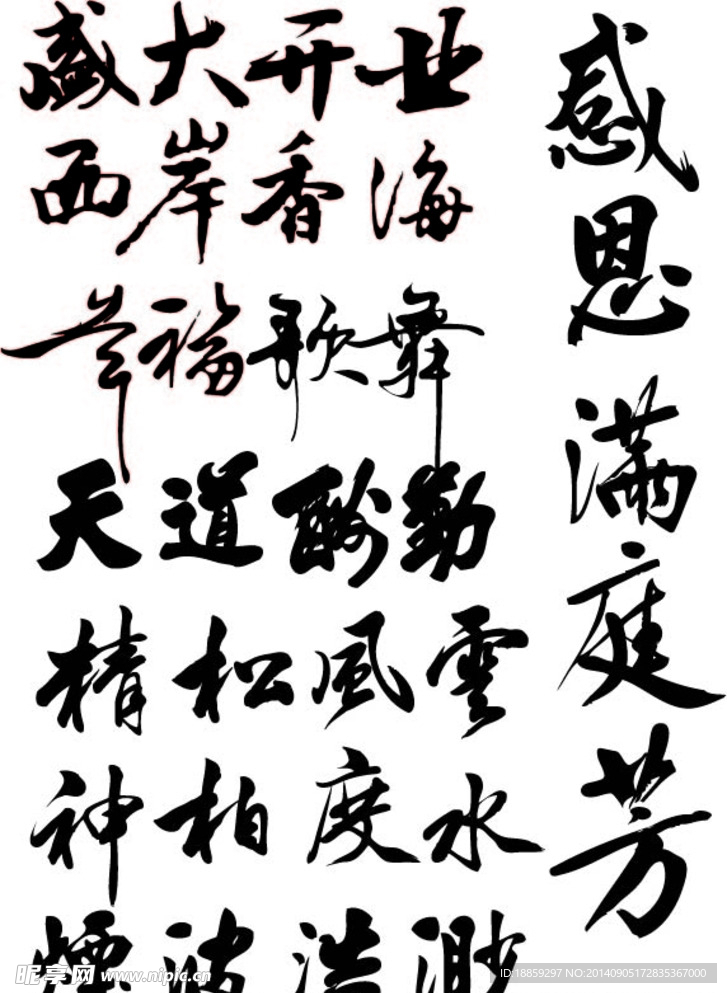 盛大开业
西岸香海
幸福歌舞
天道酬勤
精松風雲
神柏度水
煙波浩渺
感恩满庭芳
昵享网 www.nipic.cn
ID:18859297 NO:20140905172835367000